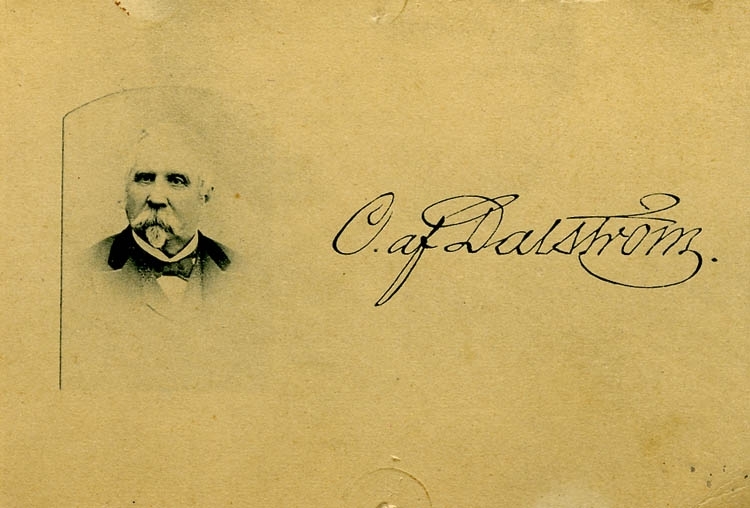 C. af Dalström.